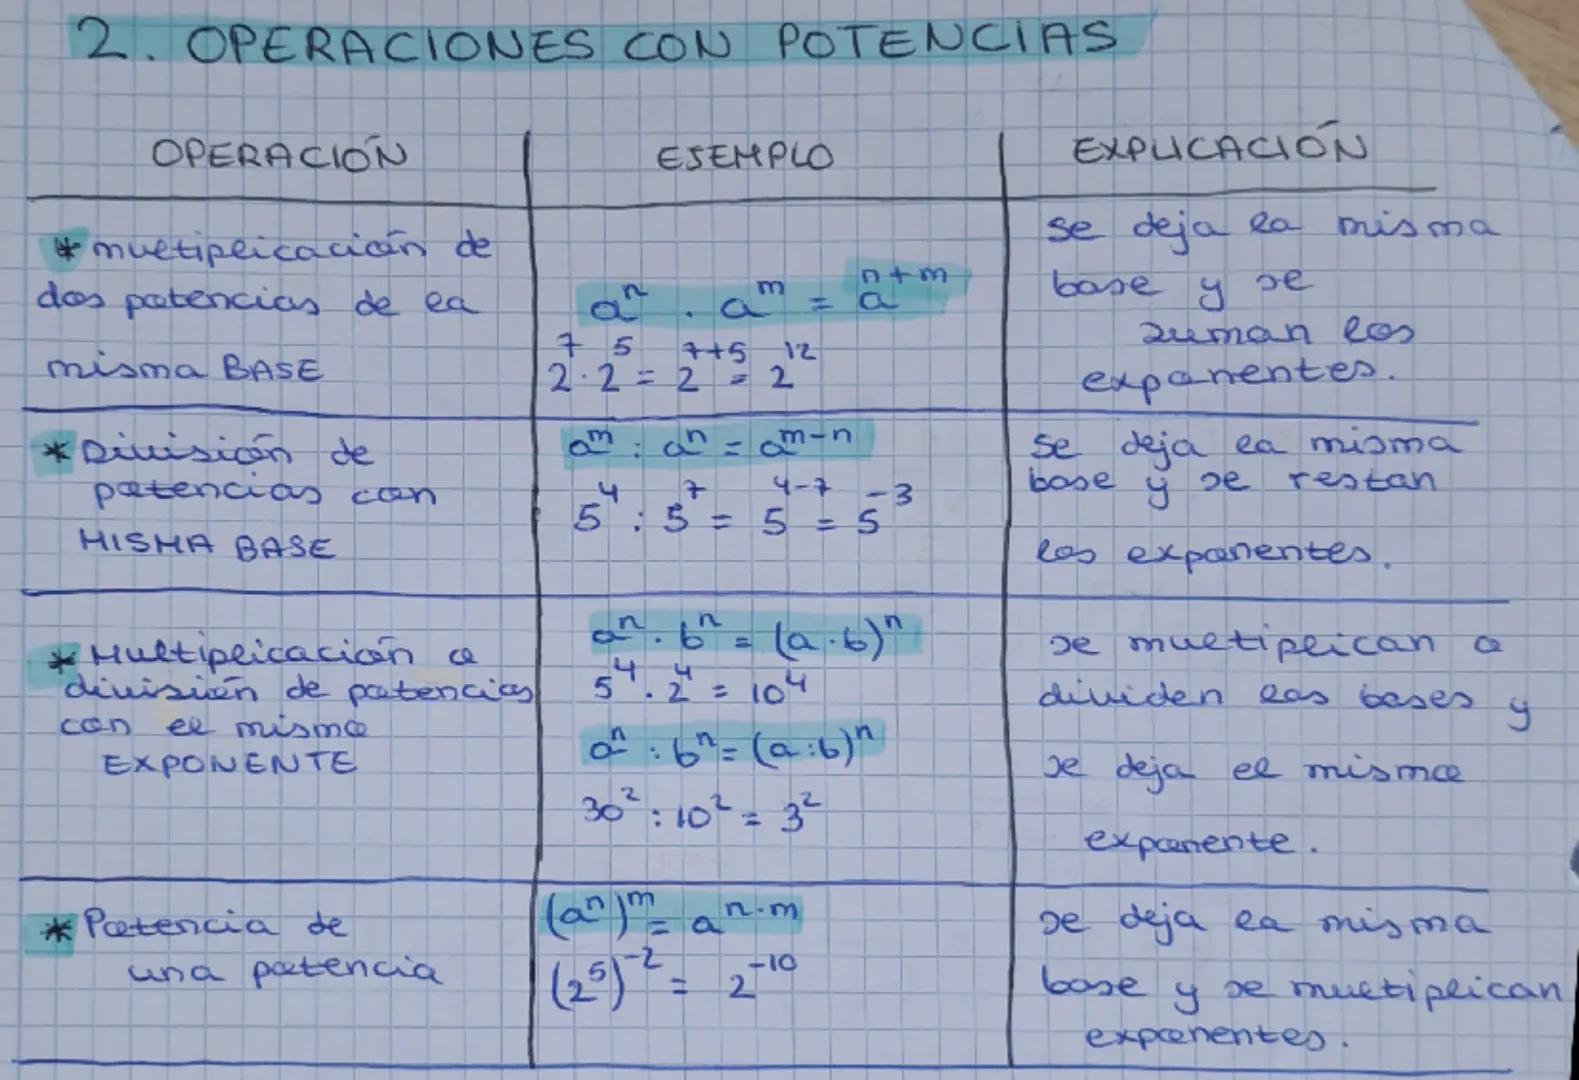 2. OPERACIONES CON POTENCIAS
OPERACIÓN
EJEMPLO
EXPLICACIÓN
* multiplicación de
dos potencias de la
misma BASE
aⁿ · aᵐ = aⁿ⁺ᵐ
2⁷ · 2⁵ = 2⁷⁺⁵ = 2¹²
se deja la misma
base y se
suman los
exponentes.
* División de
potencias con
MISMA BASE
aᵐ : aⁿ = aᵐ⁻ⁿ
5⁴ : 5⁷ = 5⁴⁻⁷ = 5⁻³
se deja la misma
base y se restan
los exponentes.
* Multiplicación o
división de potencias
con el mismo
EXPONENTE
aⁿ · bⁿ = (a·b)ⁿ
5⁴ · 2⁴ = 10⁴
aⁿ : bⁿ = (a:b)ⁿ
30² : 10² = 3²
se multiplican o
dividen las bases y
se deja el mismo
exponente.
* Potencia de
una potencia
(aⁿ)ᵐ = aⁿ·ᵐ
(2⁵)⁻² = 2⁻¹⁰
se deja la misma
base y se multiplican
exponentes.